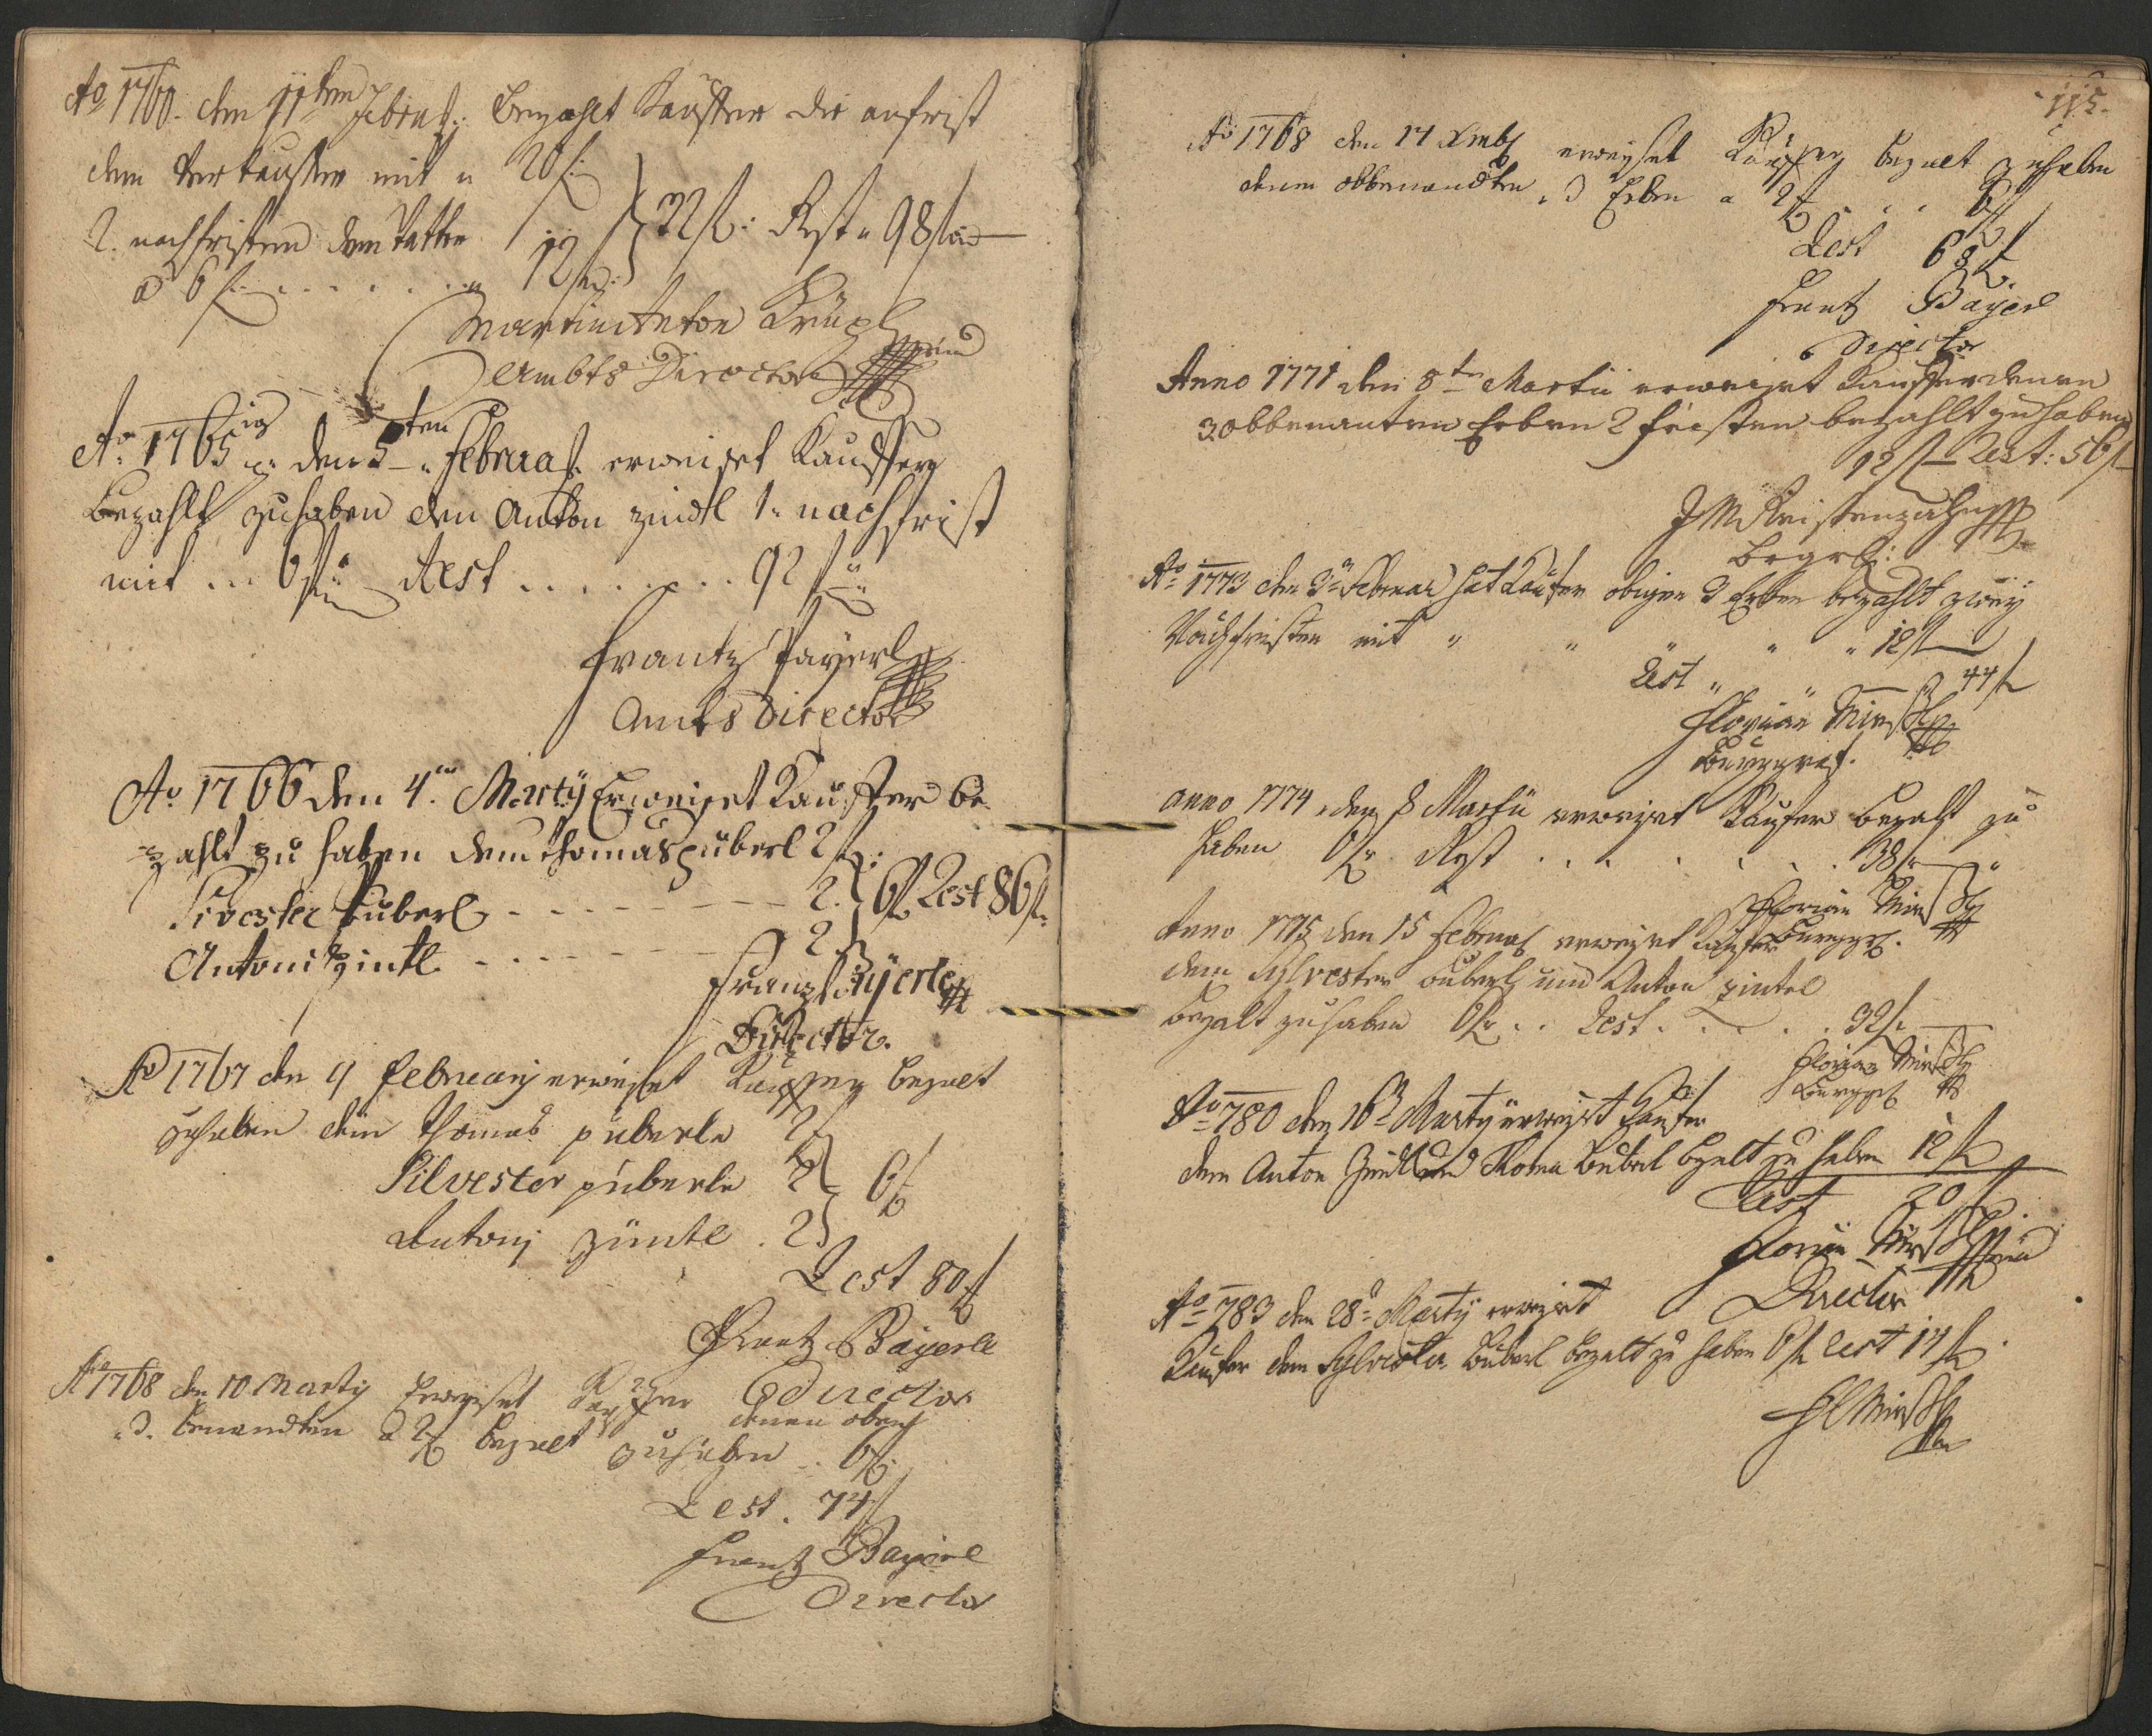 Ao 1760. den 11ten Febru: bezahlt Kauffer die anfrist
dem Verkauffer mit " 20 f:
2. nachfristen dem Vatter 12 f } 32 f: Rest " 98 f
a 6 f: . . . . . . "
Martin Anton
Ambts Director
Ao. 1765 den 5ten Februar. erweiset Kauffer
bezahlt zu haben den Anton zindl 1. nachfrist
mit ... 6 f Rest . . . . . . . 92 f
Frantz Payerl
Ambts Director
Ao 1766 den 4ten Martÿ Erweiset Kauffer be-
zahlt zu haben dem thomas püberl 2 f:
Sivester puberl - - - - - - - 2. } 6 f Rest 86 f:
Antoni zintl - - - - - - 2
Frantz Bäÿerle
Director.
Ao 1767 den 9 februarij erweiset Kauffer bezalt
zuhaben dem Thomas püberle 2 f
Silvester püberle 2 } 6 f
Antonj züntl . 2
Rest 80 f
Frantz Bayerle
Director
Ao 1768 den 10 Martÿ Erweiset Kauffer denen oben
3. benandten a 2 f bezalt zuhaben . . 6 f:
Rest . 74 f
Frantz Bayerl
Director
115.
Ao 1768 den 14 erweiset Kauffer bezalt zuhaben
denen obbenandten 3 Erben a 2 f . . . 6 f
Rest 68 f
Frantz Bayerl
Director
Anno 1771 den 8ten Martii erweiset Kauffer denen
3 obbenanten Erben 2 fristen bezahlt zu haben
12 f Rest: 56 f
Ao 1773 den 3ten Februar hat Kaufer obigen 3 Erben bezahlt zweÿ
Nachfristen mit " " " " " 12 f
Rest " " 44 f
Florian
Burggraf.
anno 1774 den 8 Martii erweiset Kaufer bezalt zu
haben 6 f Rest . . . . . . . 38 f
Florian
Burggf.
Anno 1775 den 15 Februar erweiset Kaufer
dem Sylvester buberl und Anton zintel
bezalt zu haben 6 f . . Rest . . . . . 32 f
Florian
Burggf
Ao 780 den 16ten Martÿ erweist Kaufer
dem Anton Zindl und Thoma Buberl bezalt zu haben 12 f
Rest 20 f
Florian
Director
Ao 783 den 28ten Martÿ erweist
Kaufer dem Sylvester Buberl bezalt zu haben 6 f Rest 14 f